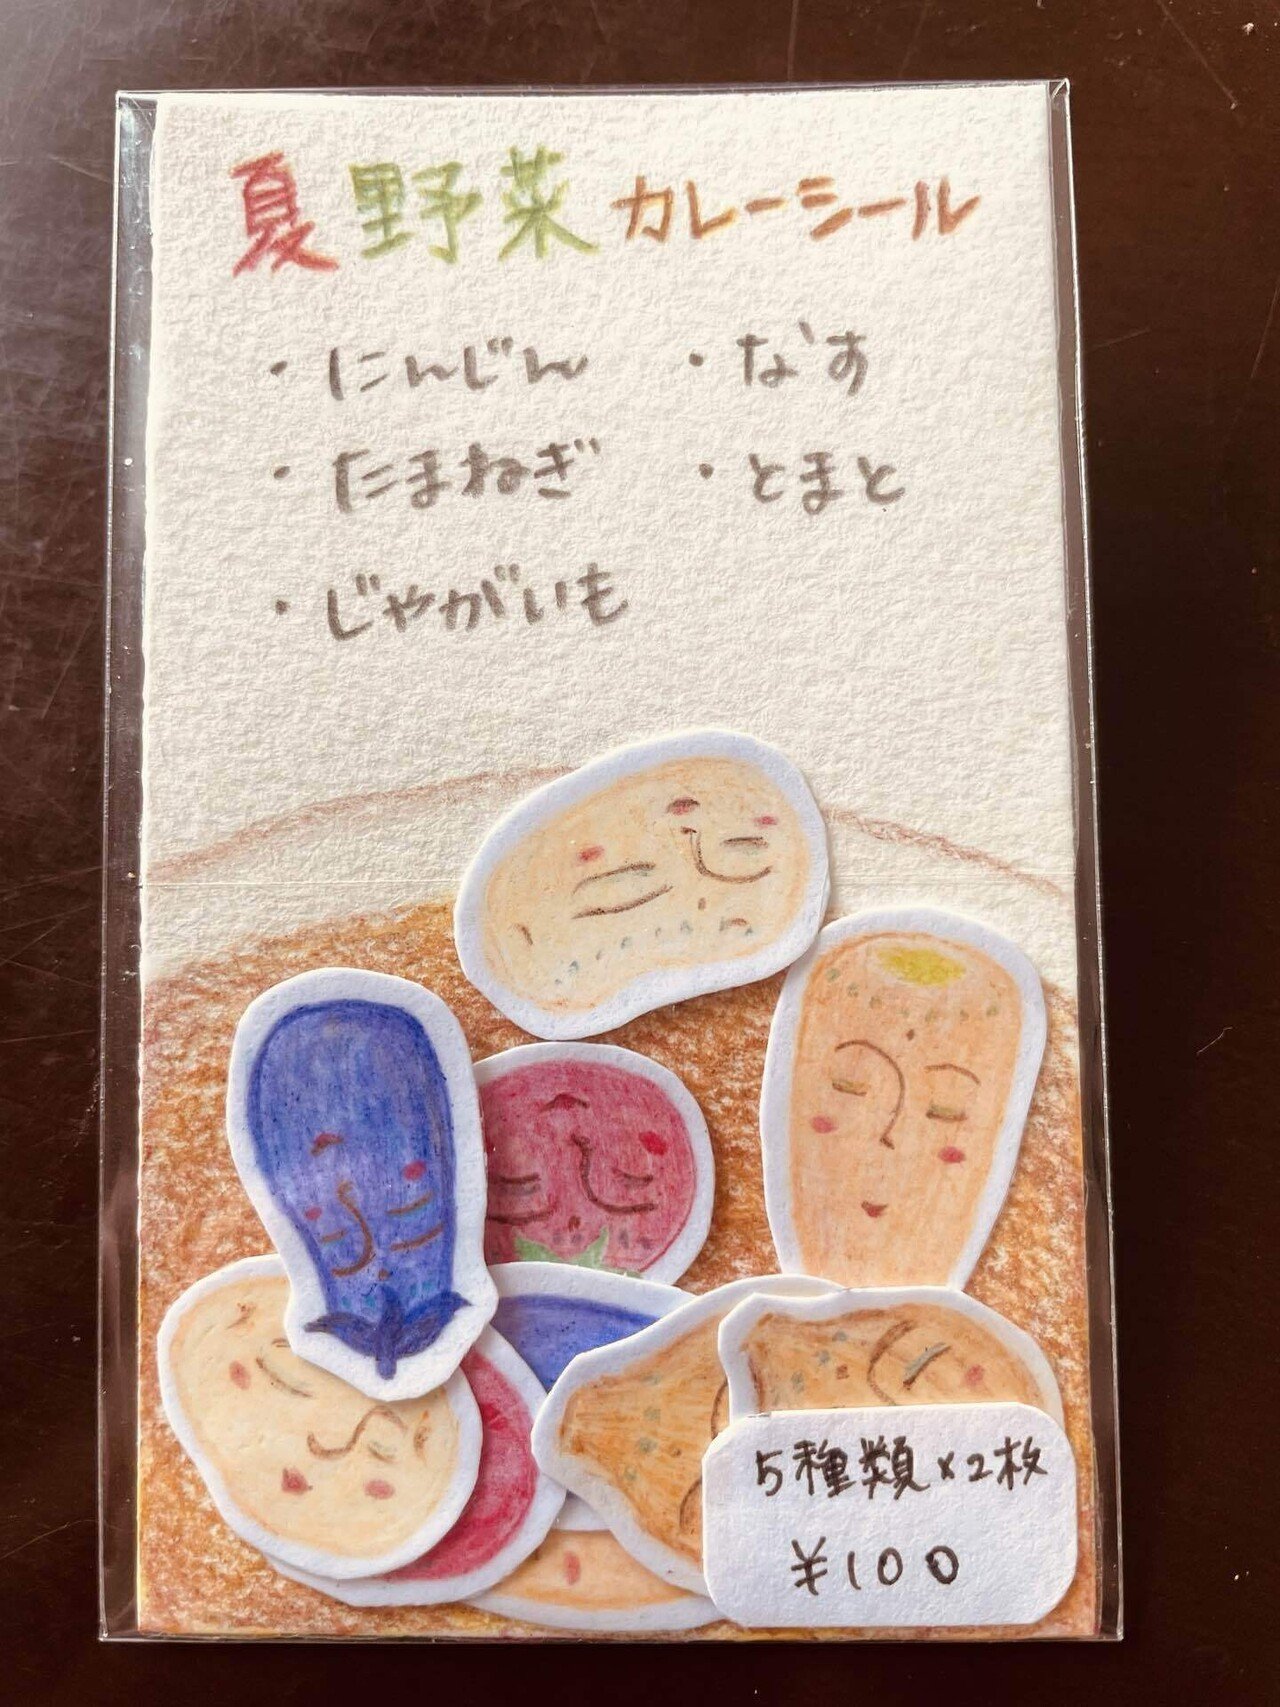 夏野菜カレーシール
・にんじん ・なす
・たまねぎ ・とまと
・じゃがいも
5種類×2枚
¥100